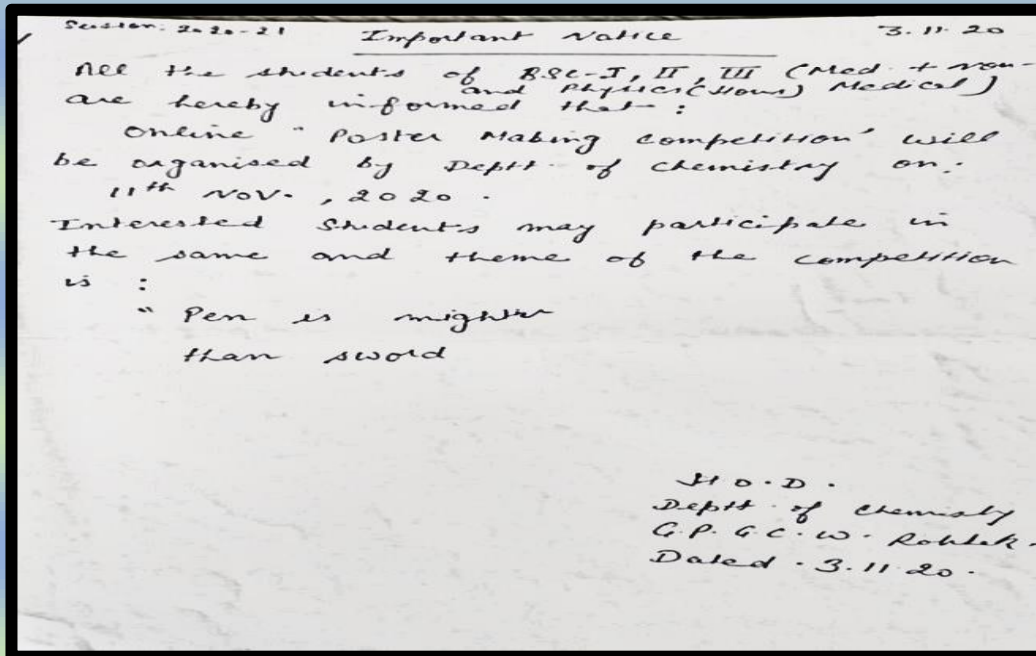 Session: 2020-21 Important Notice 3.11.20
All the students of B.Sc-I, II, III (Med. + Non-
and Physics (Hons) Medical)
are hereby informed that :
Online "Poster Making Competition' will
be organised by Deptt. of Chemistry on.
11th Nov., 2020.
Interested Students may participate in
the same and theme of the competition
is :
" Pen is mightier
than sword
H.O.D.
Deptt. of Chemistry
G.P.G.C.W. Rohtak.
Dated. 3.11.20.